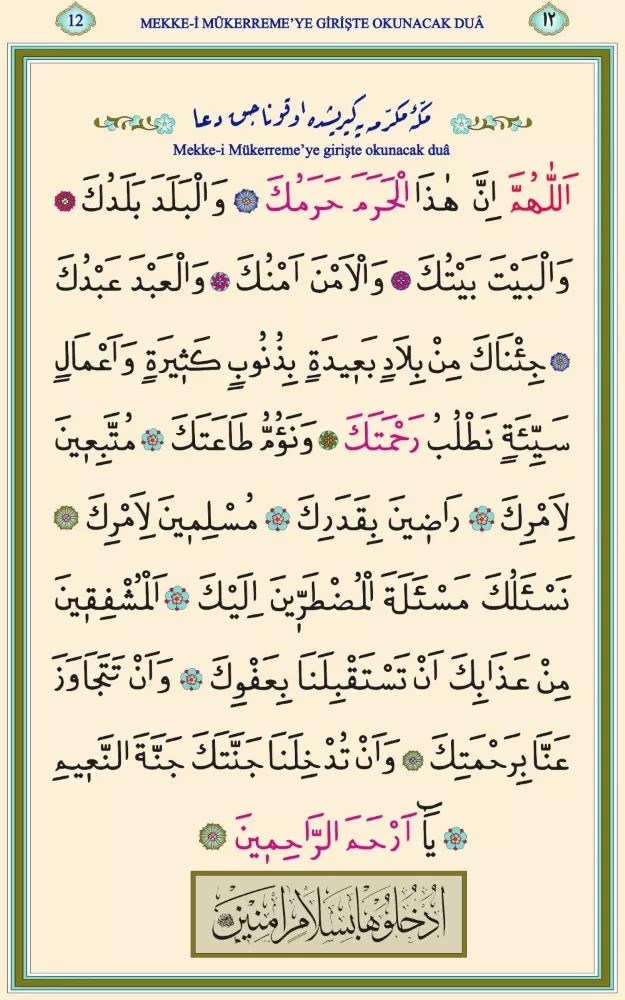 12
MEKKE-İ MÜKERREME'YE GİRİŞTE OKUNACAK DUÂ
١٢
مكّهٔ مكرّمه يه گيريشده اوقوناجق دعا
Mekke-i Mükerreme'ye girişte okunacak duâ
اَللّٰهُمَّ اِنَّ هٰذَا الْحَرَمَ حَرَمُكَ وَالْبَلَدَ بَلَدُكَ
وَالْبَيْتَ بَيْتُكَ وَالْاَمْنَ اَمْنُكَ وَالْعَبْدَ عَبْدُكَ
جِئْنَاكَ مِنْ بِلَادٍ بَعٖيدَةٍ بِذُنُوبٍ كَثٖيرَةٍ وَاَعْمَالٍ
سَيِّئَةٍ نَطْلُبُ رَحْمَتَكَ وَنَؤُمُّ طَاعَتَكَ مُتَّبِعٖينَ
لِاَمْرِكَ رَاضٖينَ بِقَدَرِكَ مُسْلِمٖينَ لِاَمْرِكَ
نَسْئَلُكَ مَسْئَلَةَ الْمُضْطَرّٖينَ اِلَيْكَ اَلْمُشْفِقٖينَ
مِنْ عَذَابِكَ اَنْ تَسْتَقْبِلَنَا بِعَفْوِكَ وَاَنْ تَتَجَاوَزَ
عَنَّا بِرَحْمَتِكَ وَاَنْ تُدْخِلَنَا جَنَّتَكَ جَنَّةَ النَّعٖيمِ
يَٓا اَرْحَمَ الرَّاحِمٖينَ
اُدْخُلُوهَا بِسَلَامٍ اٰمِنٖينَ